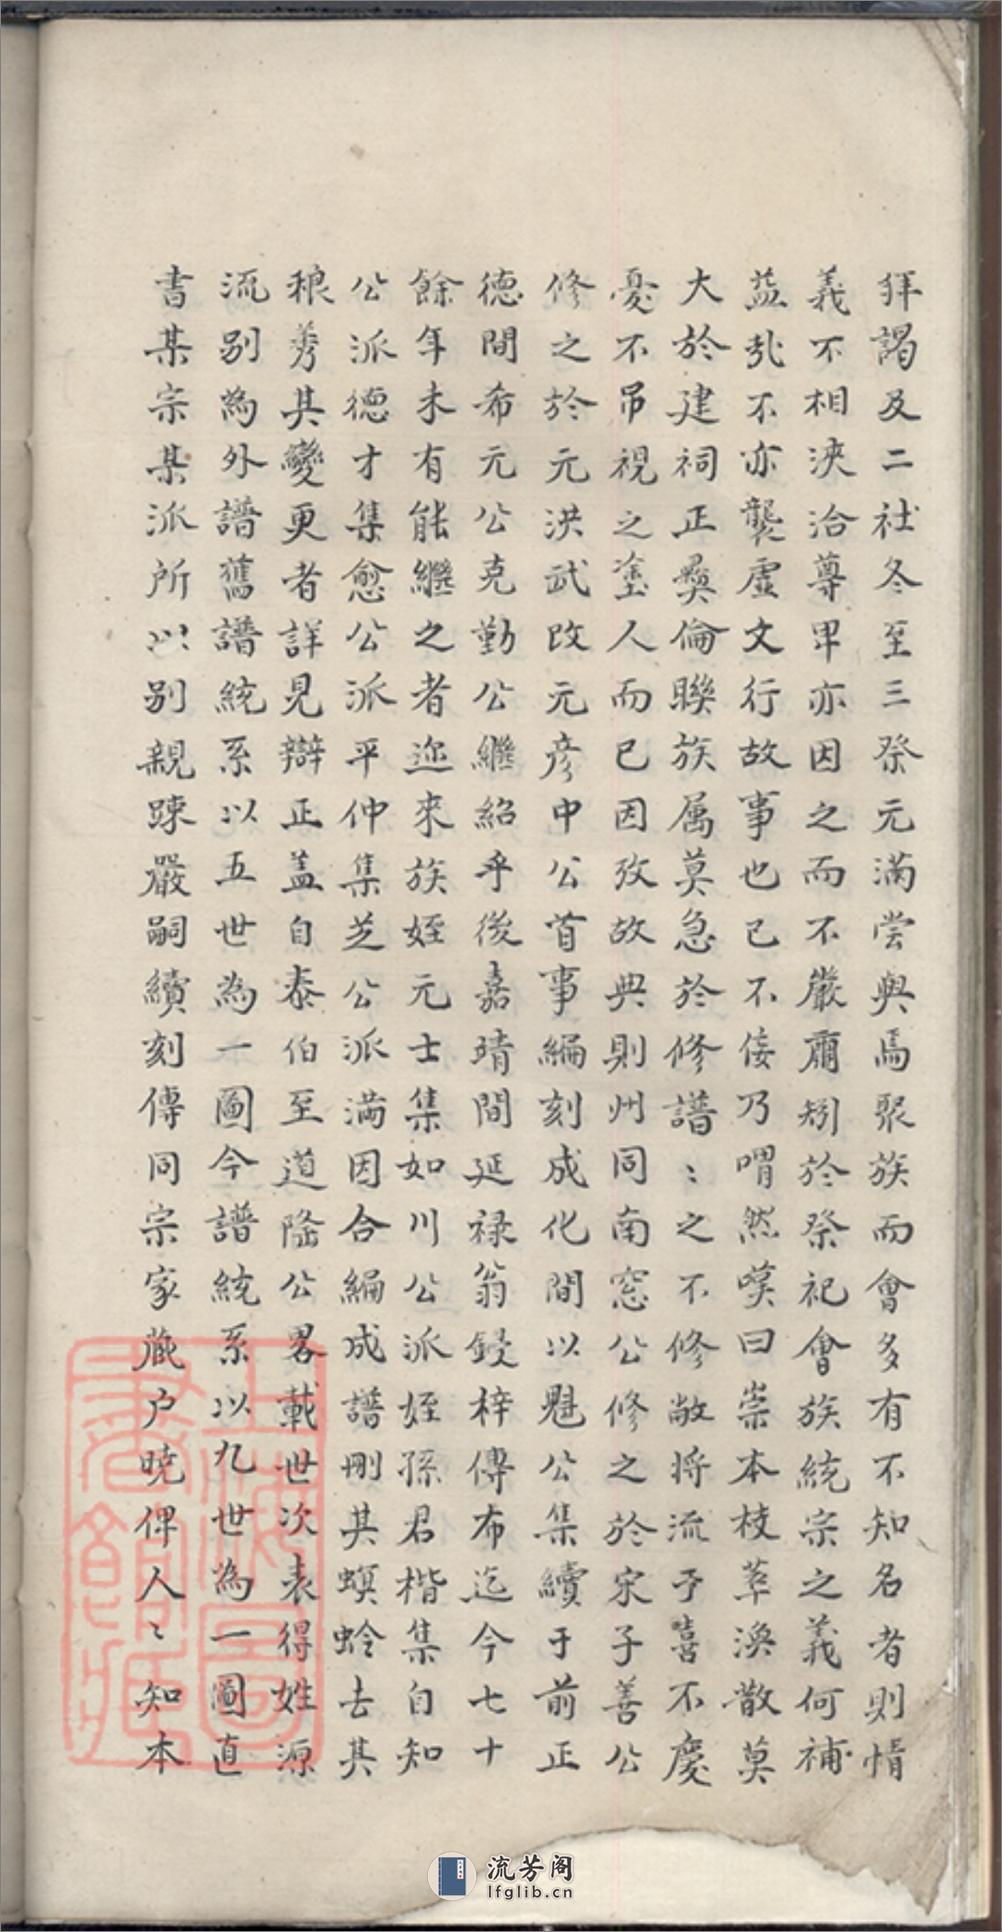 拜謁及二社冬至三祭元滿嘗與焉聚族而會多有不知名者則情
義不相浹洽尊卑亦因之而不嚴肅矧於祭祀會族統宗之義何補
益哉不亦襲虛文行故事也已不佞乃喟然嘆曰崇本枝萃渙散莫
大於建祠正彝倫聯族属莫急於修譜〻之不修敝将流于喜不慶
憂不吊視之塗人而已因攷故典則州同南窓公修之於宋子善公
修之於元洪武改元彦中公首事編刻成化間以魁公集續于前正
德間希元公克勤公繼紹乎後嘉靖間延禄翁鋟梓傳布迄今七十
餘年未有能繼之者迩來族姪元士集如川公派姪孫君楷集自知
公派德才集愈公派平仲集芝公派滿因合編成譜刪其螟蛉去其
稂莠其變更者詳見辯正盖自泰伯至道隆公畧載世次表得姓源
流别為外譜舊譜統系以五世為一圖今譜統系以九世為一圖直
書某宗某派所以别親踈嚴嗣續刻傳同宗家蔵户曉俾人〻知本
上海圖書館藏
流芳阁
lfglib.cn